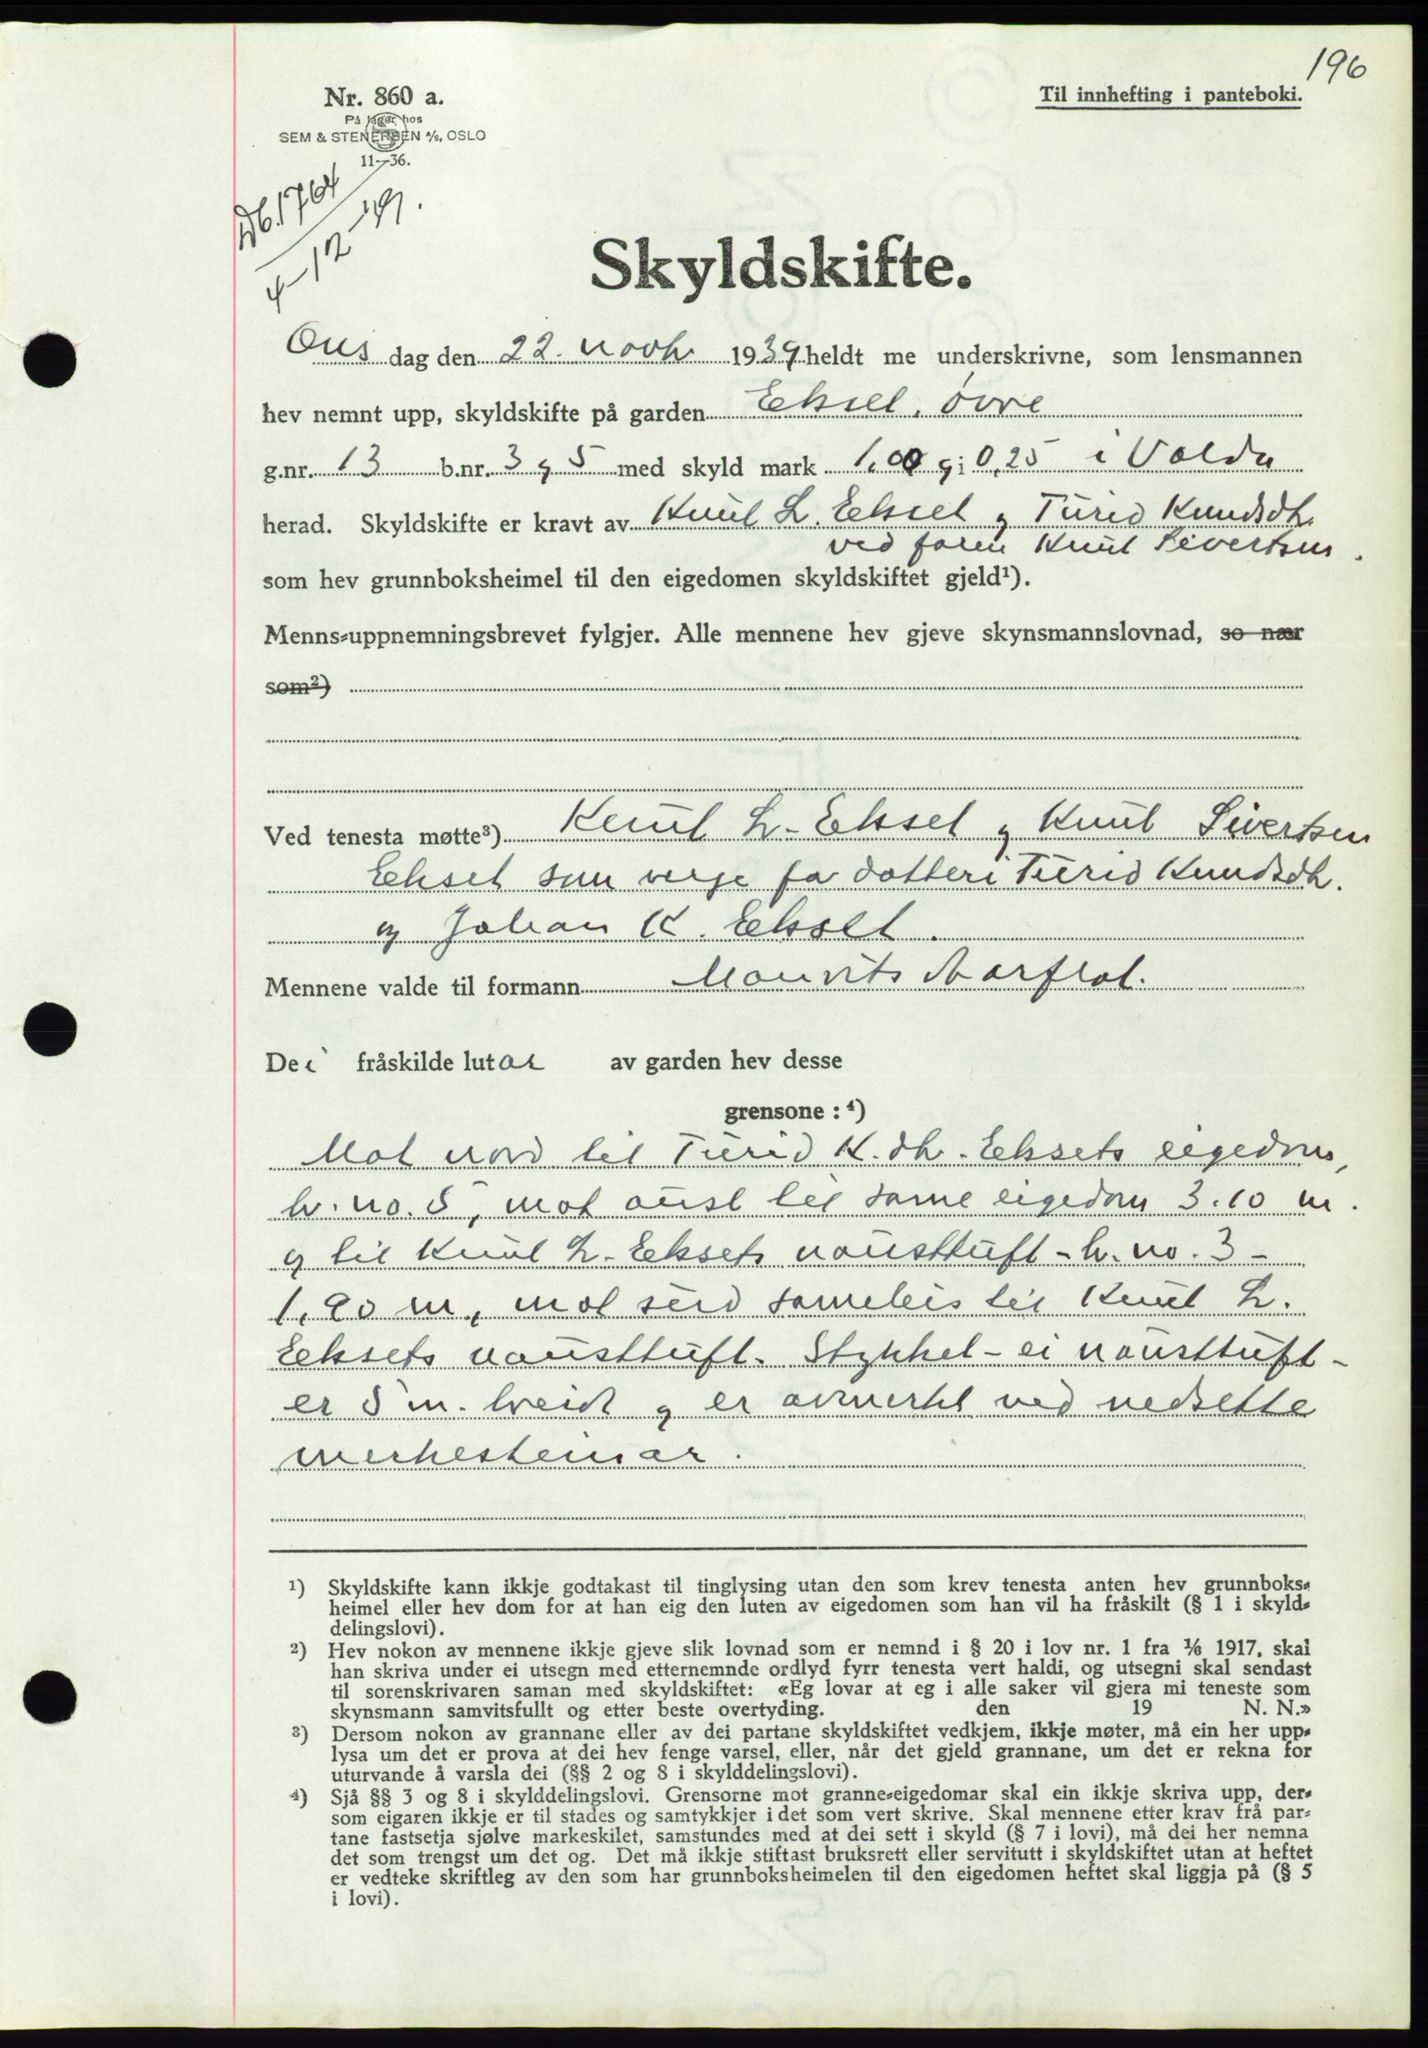 196
Nr. 860 a.
På lager hos
SEM & STENERSEN A/S, OSLO
11—36.
Til innhefting i panteboki.
Db. 1764
4-12-'39.
Skyldskifte.
Ons dag den 22. novbr 1939 heldt me underskrivne, som lensmannen
hev nemnt upp, skyldskifte på garden Ekset, øvre
g.nr. 13 b.nr. 3 og 5 med skyld mark 1,00 og 0,25 i Volda
herad. Skyldskifte er kravt av Knut L. Ekset og Turid Knudsdtr.
ved faren Knut Sivertsen.
som hev grunnboksheimel til den eigedomen skyldskiftet gjeld¹).
Menns-uppnemningsbrevet fylgjer. Alle mennene hev gjeve skynsmannslovnad, so nær
som²)
Ved tenesta møtte³) Knut L. Ekset og Knut Sivertsen
Ekset som verge for dotteri Turid Knudsdtr.
og Johan K. Ekset.
Mennene valde til formann Mauritz Aarflot.
Dei fråskilde lutar av garden hev desse
grensone : ⁴)
Mot nord til Turid K.dtr. Eksets eigedom,
br. no. 5, mot aust til same eigedom 3.10 m.
og til Knut L. Eksets nausttuft - br. no. 3 -
1,90 m, mot sud sameleis til Knut L.
Eksets nausttuft. Stykket - ei nausttuft -
er 5 m. breidt og er avmerkt ved nedsette
merkesteinar.
¹) Skyldskifte kann ikkje godtakast til tinglysing utan den som krev tenesta anten hev grunnboks-
heimel eller hev dom for at han eig den luten av eigedomen som han vil ha fråskilt (§ 1 i skyld-
delingslovi).
²) Hev nokon av mennene ikkje gjeve slik lovnad som er nemnd i § 20 i lov nr. 1 fra 1/6 1917, skal
han skriva under ei utsegn med etternemnde ordlyd fyrr tenesta vert haldi, og utsegni skal sendast
til sorenskrivaren saman med skyldskiftet: «Eg lovar at eg i alle saker vil gjera mi teneste som
skynsmann samvitsfullt og etter beste overtyding. den 19 N. N.»
³) Dersom nokon av grannane eller av dei partane skyldskiftet vedkjem, ikkje møter, må ein her upp-
lysa um det er prova at dei hev fenge varsel, eller, når det gjeld grannane, um det er rekna for
uturvande å varsla dei (§§ 2 og 8 i skylddelingslovi).
⁴) Sjå §§ 3 og 8 i skylddelingslovi. Grensorne mot granne-eigedomar skal ein ikkje skriva upp, der-
som eigaren ikkje er til stades og samtykkjer i det som vert skrive. Skal mennene etter krav frå par-
tane fastsetja sjølve markeskilet, samstundes med at dei sett i skyld (§ 7 i lovi), må dei her nemna
det som trengst um det og. Det må ikkje stiftast bruksrett eller servitutt i skyldskiftet utan at heftet
er vedteke skriftleg av den som har grunnboksheimelen til den eigedomen heftet skal liggja på (§ 5
i lovi).